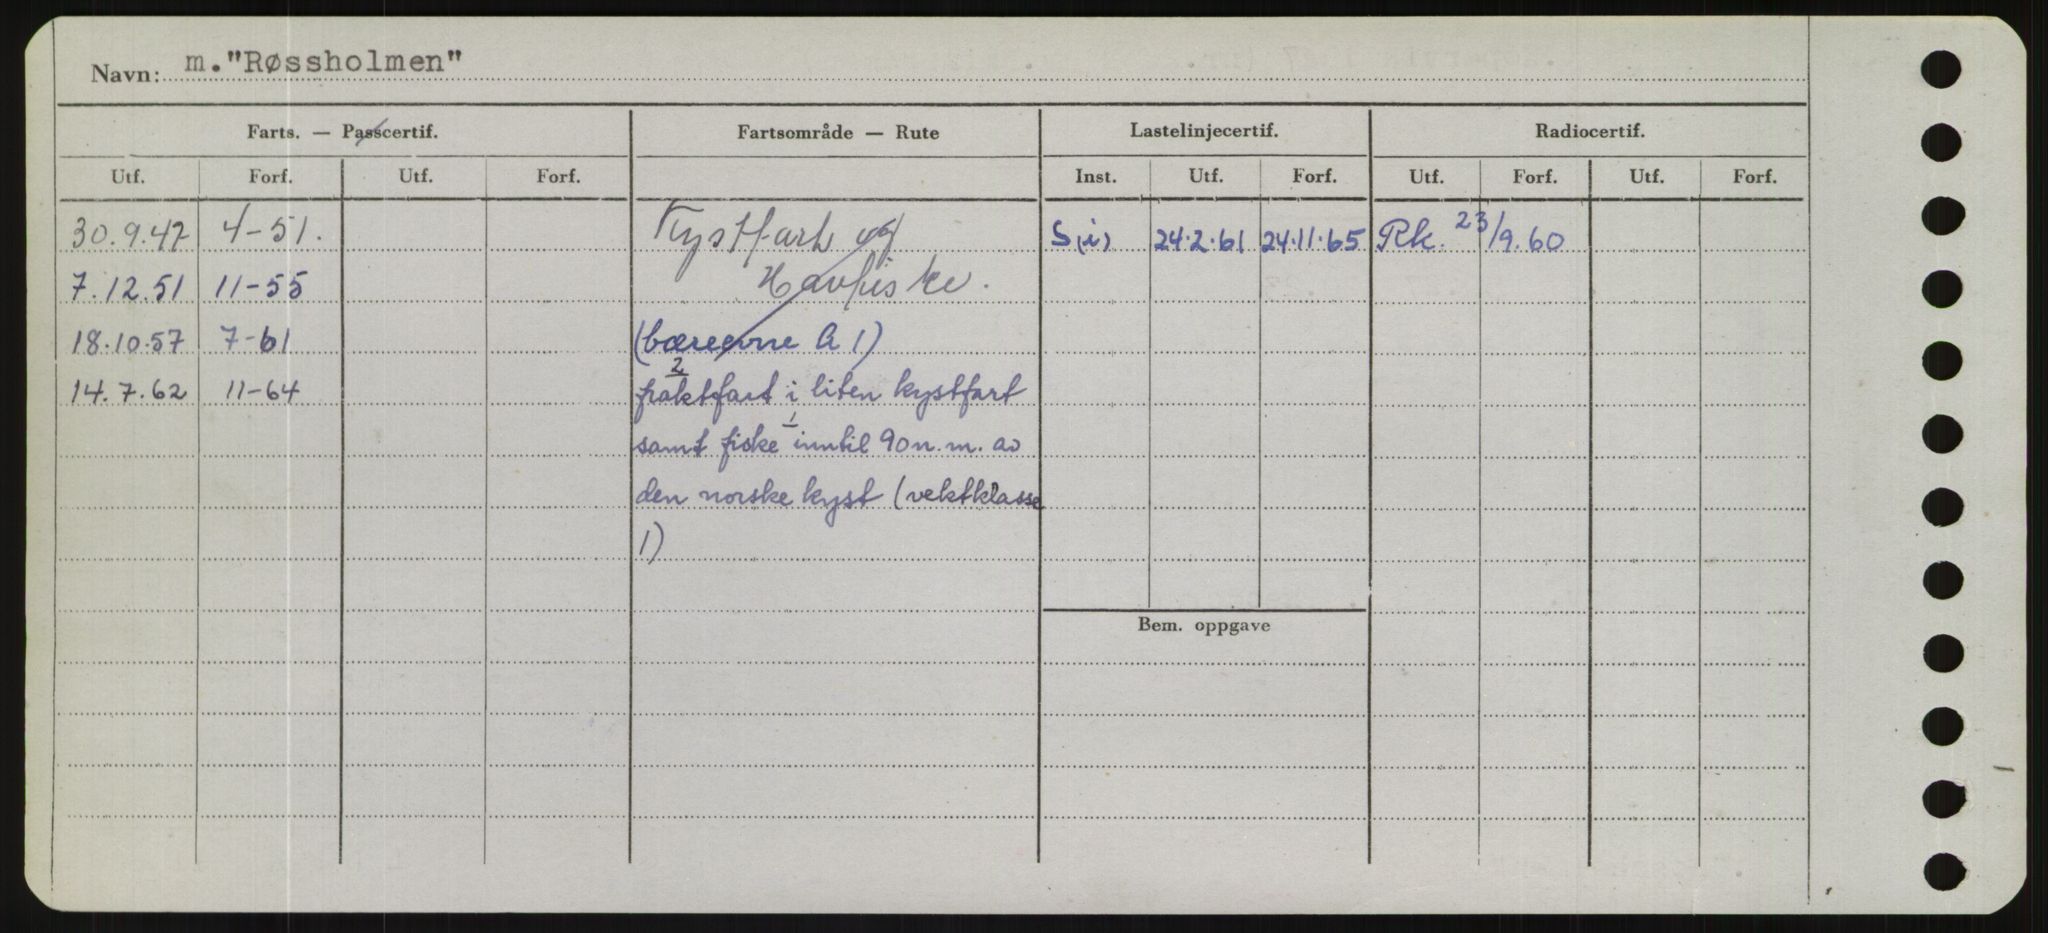 Navn: m."Røssholmen"
Farts. — Passcertif. Fartsområde — Rute Lastelinjecertif. Radiocertif.
Utf. Forf. Utf. Forf. Inst. Utf. Forf. Utf. Forf. Utf. Forf.
30.9.47 4-51. Kystfart og S(i) 24.2.61 24.11.65 Rk. 23/9.60
7.12.51 11-55 Havfiske.
18.10.57 7-61 (bæreevne A 1)
2
14.7.62 11-64 fraktfart i liten kystfart
1
samt fiske inntil 90 n.m. av
den norske kyst (vektklasse
1)
Bem. oppgave